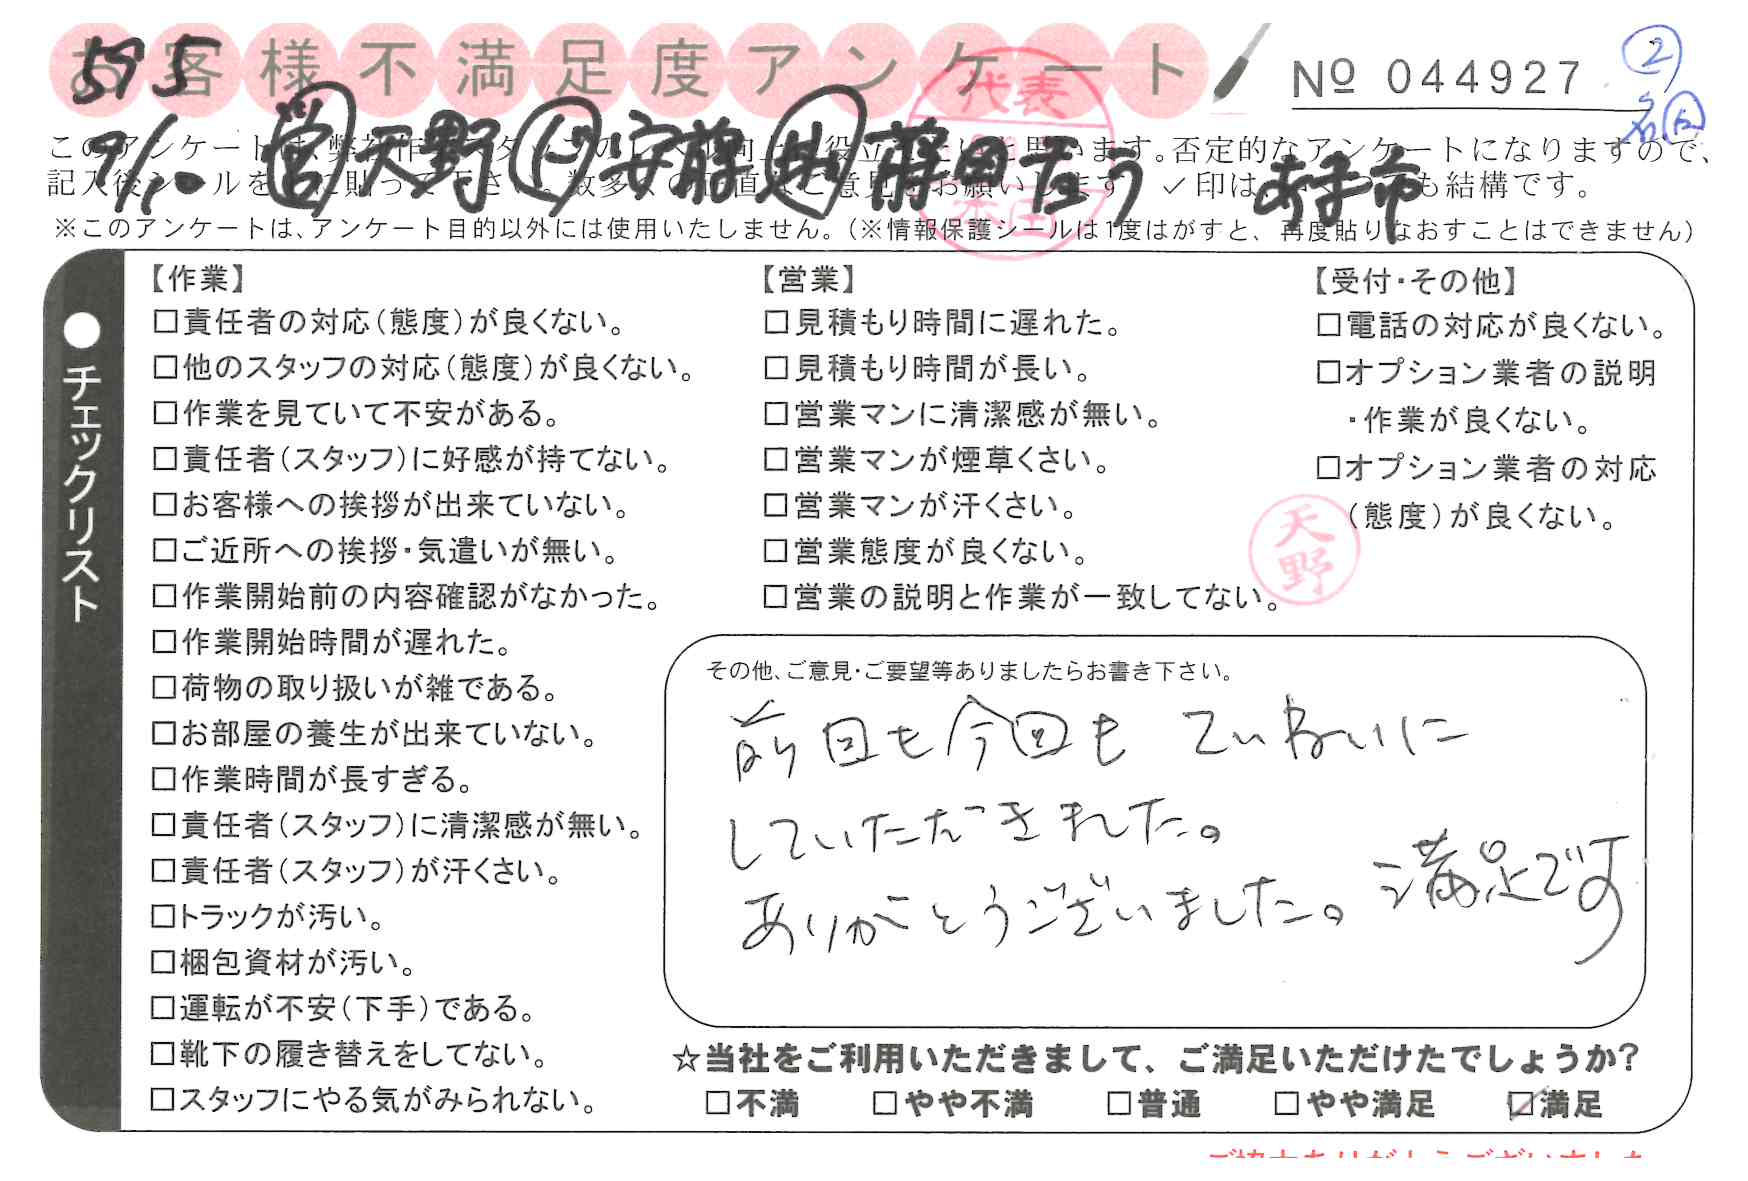 お客様不満足度アンケート
№ 044927
②
575
名西
7/1. 営 天野 ド 安藤 助 藤田 あま市
このアンケートは、弊社作業スタッフのレベル向上に役立てたいと思います。否定的なアンケートになりますので、
記入後シールを上に貼って下さい。数多くの正直なご意見をお願いします ✓印は、いくつでも結構です。
※このアンケートは、アンケート目的以外には使用いたしません。（※情報保護シールは1度はがすと、再度貼りなおすことはできません）
代表
米田
●チェックリスト
【作業】
□責任者の対応（態度）が良くない。
□他のスタッフの対応（態度）が良くない。
□作業を見ていて不安がある。
□責任者（スタッフ）に好感が持てない。
□お客様への挨拶が出来ていない。
□ご近所への挨拶・気遣いが無い。
□作業開始前の内容確認がなかった。
□作業開始時間が遅れた。
□荷物の取り扱いが雑である。
□お部屋の養生が出来ていない。
□作業時間が長すぎる。
□責任者（スタッフ）に清潔感が無い。
□責任者（スタッフ）が汗くさい。
□トラックが汚い。
□梱包資材が汚い。
□運転が不安（下手）である。
□靴下の履き替えをしてない。
□スタッフにやる気がみられない。
【営業】
□見積もり時間に遅れた。
□見積もり時間が長い。
□営業マンに清潔感が無い。
□営業マンが煙草くさい。
□営業マンが汗くさい。
□営業態度が良くない。
□営業の説明と作業が一致してない。
【受付・その他】
□電話の対応が良くない。
□オプション業者の説明
・作業が良くない。
□オプション業者の対応
（態度）が良くない。
天野
その他、ご意見・ご要望等ありましたらお書き下さい。
前回も今回も ていねいに
していただきました。
ありがとうございました。満足です
☆当社をご利用いただきまして、ご満足いただけたでしょうか?
□不満 □やや不満 □普通 □やや満足 ☑満足
ご協力ありがとうございました